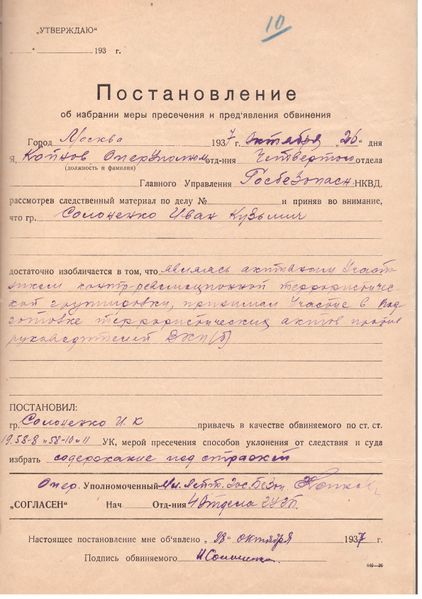 10
„УТВЕРЖДАЮ"
„ " 193 г.
Постановление
об избрании меры пресечения и пред'явления обвинения
Город Москва 1937 г. октября 26 дня
Я, Опер уполном отд-ния Четвертого отдела
(должность и фамилия)
Главного Управления Госбезопасн НКВД,
рассмотрев следственный материал по делу № и приняв во внимание,
что гр. Солоненко Иван Кузьмич
достаточно изобличается в том, что являясь активным участ
ником контр-революционной террористиче
ской группировки, принимал участие в под
готовке террористических актов против
руководителей ВКП(б)
ПОСТАНОВИЛ:
гр. Солоненко И. К привлечь в качестве обвиняемого по ст. ст.
58-8 и 58-10 и 11 УК, мерой пресечения способов уклонения от следствия и суда
избрать содержание под стражей
Опер. Уполномоченный Мл. лейт. Гос. Безоп.
„СОГЛАСЕН" Нач Отд-ния 4 Отдела ГУГБ
Настоящее постановление мне об'явлено „ " октября 1937 г.
Подпись обвиняемого ИСолоненко